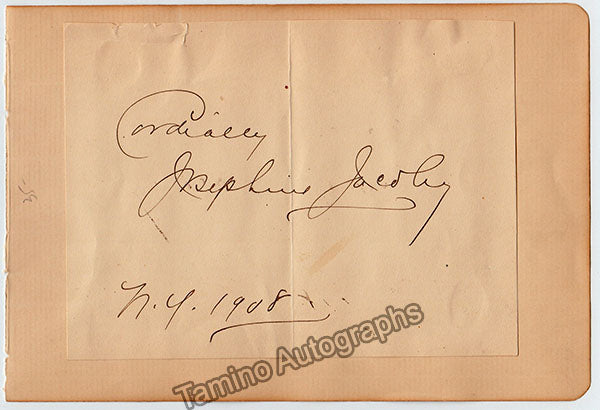 Cordially
Josephine Jacoby
N.Y. 1908
Tamino Autographs